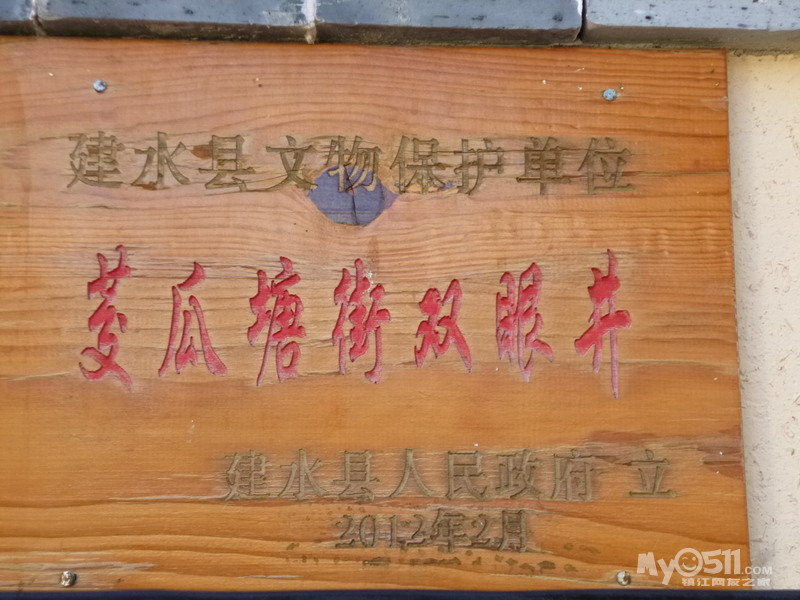 建水县文物保护单位
茭瓜塘街双眼井
建水县人民政府 立
2012年2月
MyO511.com
镇江网友之家